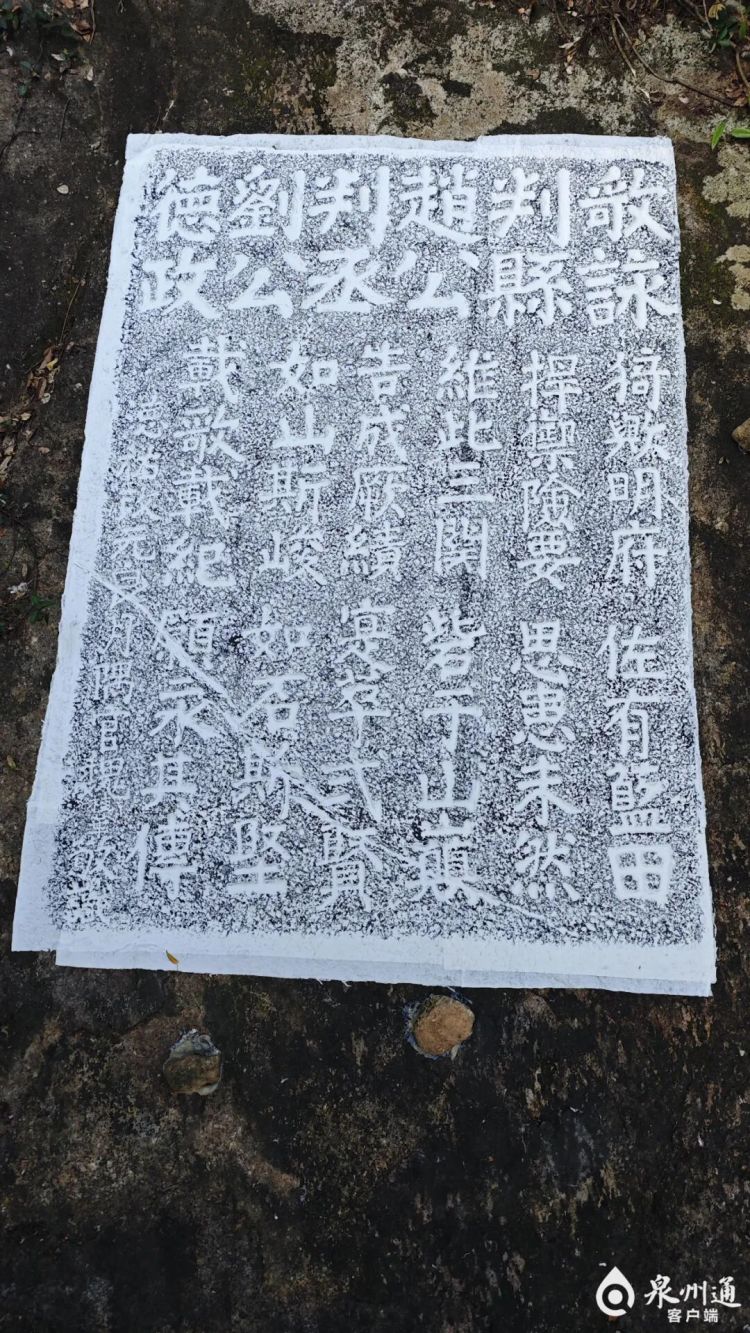 敬詠
判縣
趙公
判丞
劉公
德政
猗歟明府 佐有藍田
捍禦險要 思患未然
維此三關 砦于山巔
告成厥績 寔宰弍賢
如山斯峻 如石斯堅
載歌載紀 永其傳
德祐改元 月隅官
泉州通
客户端